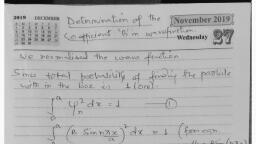 2019 DECEMBER
Determination of the
November 2019
Coefficient 'B' in wavefunction
Wednesday 27
We normalised the wave function
Since total probability of finding the particle
with in the box is 1 (one).
∫₀ᵃ ψₙ² dx = 1 — ①
∫₀ᵃ (B Sin nπx/a)² dx = 1 (from eqn.